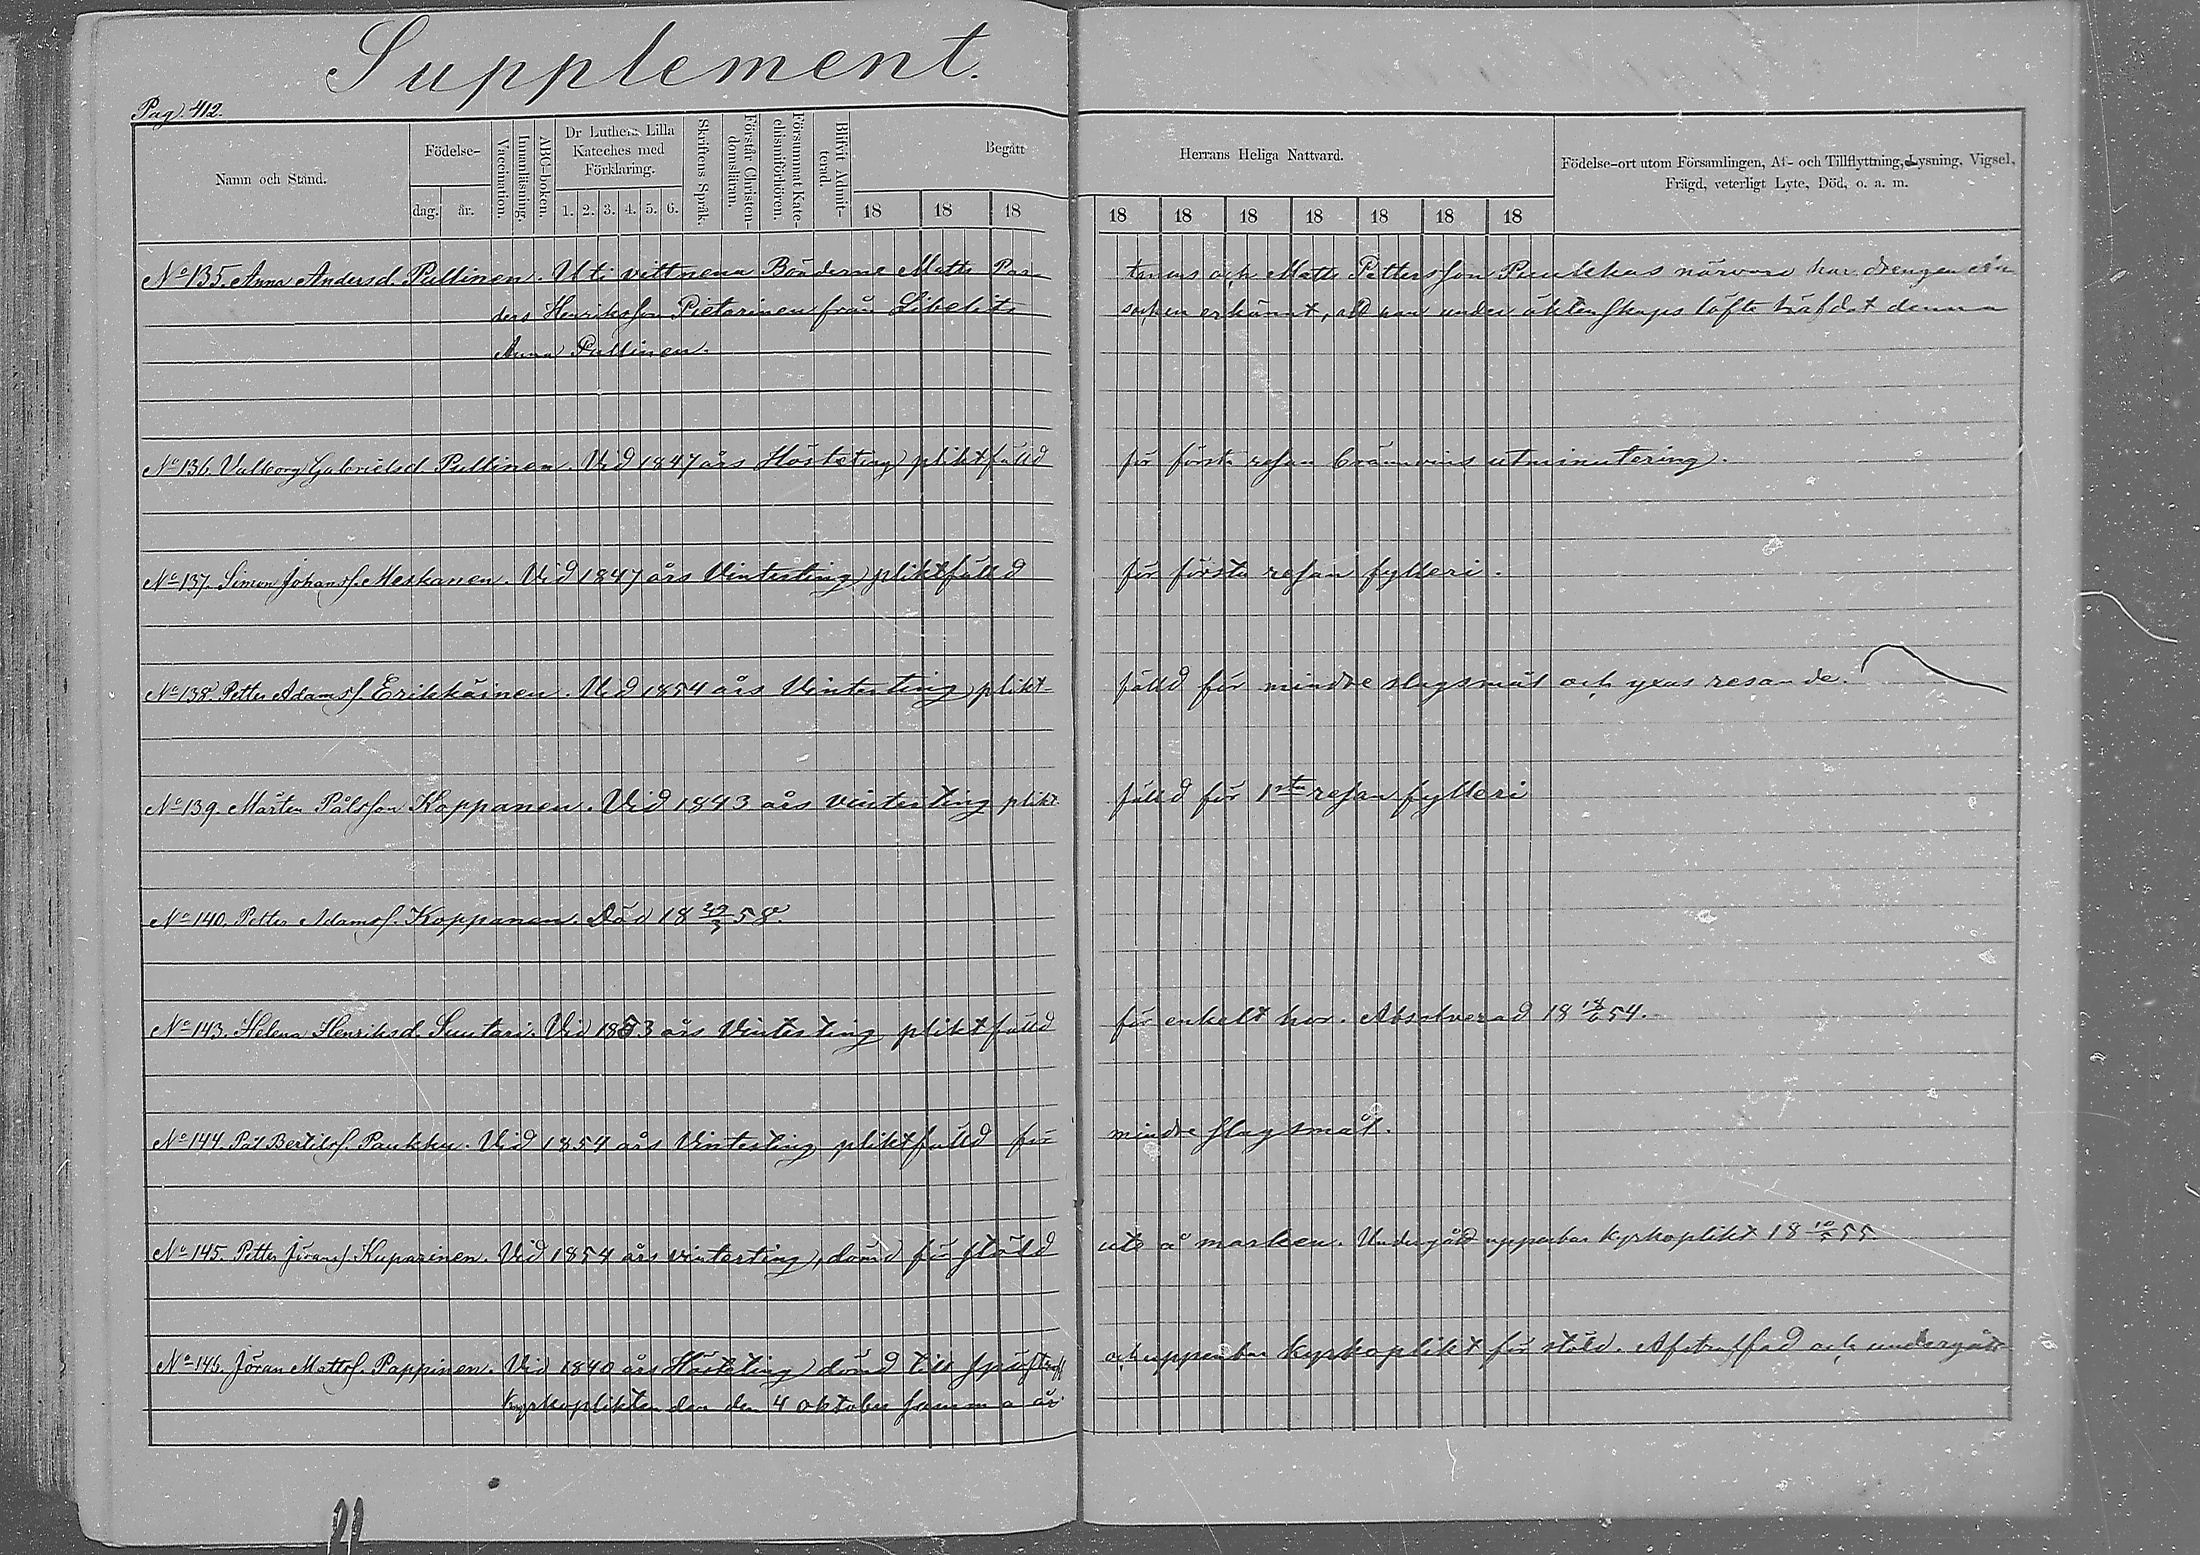 Supplement.
Pag. 412.
Namn och Stånd.
Födelse-
dag. år.
Vaccination.
Innanläsning.
ABC-boken.
Dr Luthers Lilla Kateches med Förklaring.
1. 2. 3. 4. 5. 6.
Skriftens Språk.
Förstår Christendomsläran.
Försummat Katechismiförhören.
Blifvit Admitterad.
Begått Herrans Heliga Nattvard.
18 18 18 18 18 18 18 18 18 18
Födelse-ort utom Församlingen, Af- och Tillflyttning, Lysning, Vigsel, Frägd, veterligt Lyte, Död, o. a. m.
No 135. Anna Andersd. Pullinen. Uti vittnena Bönderne Matts Par- tanens och Matts Pettersson Puukkas närvaro har drengen
ders Henriksson Pietarinen från Libelits socken erkännt, att han under äktenskaps löfte häfdat denna
Anna Pullinen.
No 136. Valborg Gabrielsd Pullinen. Vid 1847 års Hösteting pliktfälld för första resan brännvins utminutering.
No 137. Simon Johanss. Meskanen. Vid 1847 års Vinterting pliktfälld för första resan fylleri.
No 138. Petter Adamss. Erikkäinen. Vid 1854 års Vinterting plikt- fälld för mindre slagsmål och yxas resande.
No 139. Mårten Pålsson Koppanen. Vid 1843 års vinterting plikt fälld för 1sta resan fylleri
No 140. Petter Adamss. Koppanen. Död 18 29/3 58.
No 143. Helena Henriksd. Suutari. Vid 1853 års Vinterting pliktfälld för enkelt hor. Absolverad 18 18/6 54.
No 144. Pål Bertilss. Paukku. Vid 1854 års Vinterting pliktfälld för mindre slagsmål.
No 145. Petter Jöranss. Kuparinen. Vid 1854 års vinterting, dömd för stöld ute å marken. Undergått uppenbar kyrkoplikt 18 10/5 55
No 146. Jöran Mattss. Pappinen. Vid 1840 års Hösteting dömd till spöstraff och uppenbar kyrkoplikt för stöld. Afstraffad och undergått
kyrkoplikten den den 4 oktober samma år